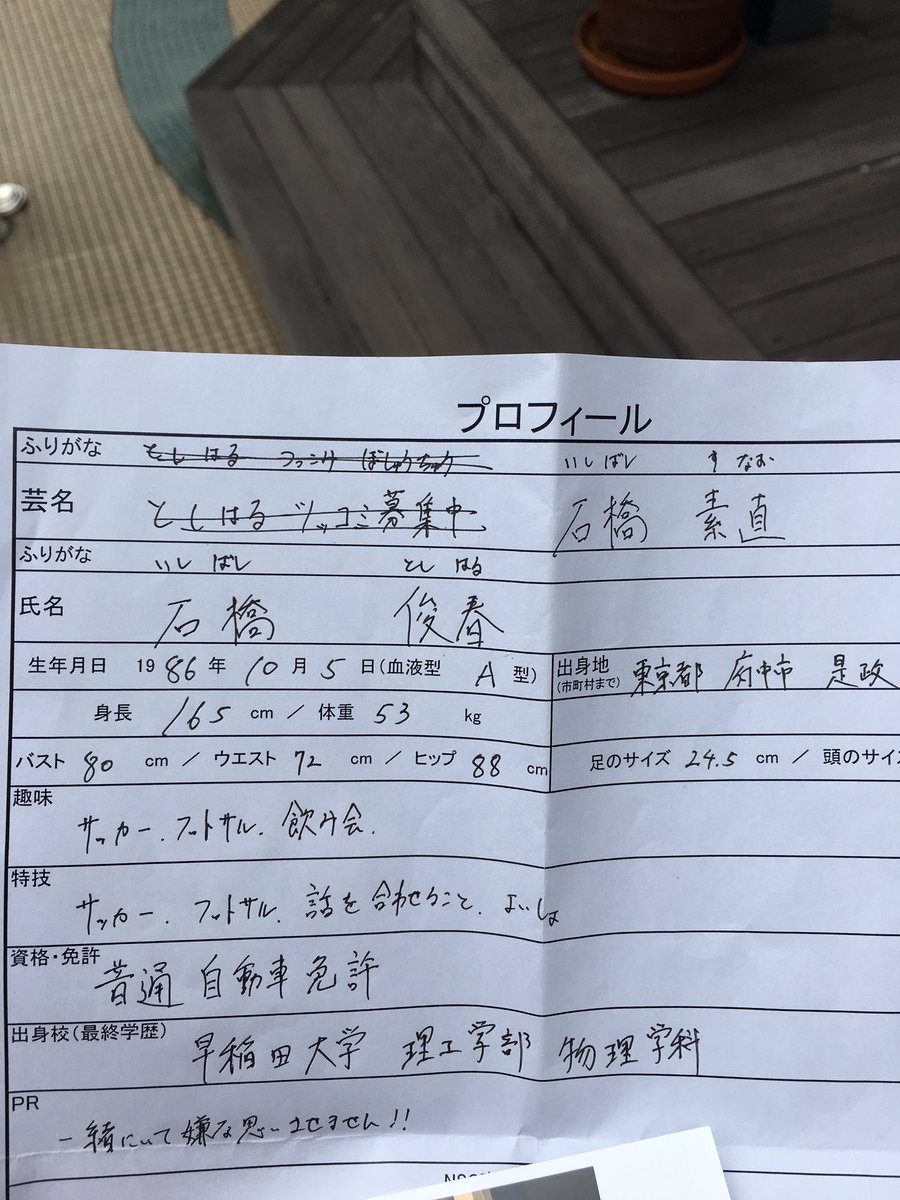 プロフィール
ふりがな としはる つっこみ ぼしゅうちゅう いしばし すなお
芸名 としはるツッコミ募集中 石橋 素直
ふりがな いしばし としはる
氏名 石橋 俊春
生年月日 1986年10月5日(血液型 A型) 出身地(市町村まで) 東京都 府中市 是政
身長 165 cm / 体重 53 kg
バスト 80 cm / ウエスト 72 cm / ヒップ 88 cm 足のサイズ 24.5 cm / 頭のサイズ
趣味
サッカー、フットサル、飲み会、
特技
サッカー、フットサル、話を合わせること、よいしょ
資格・免許
普通自動車免許
出身校(最終学歴)
早稲田大学 理工学部 物理学科
PR
一緒にいて嫌な思いさせません!!